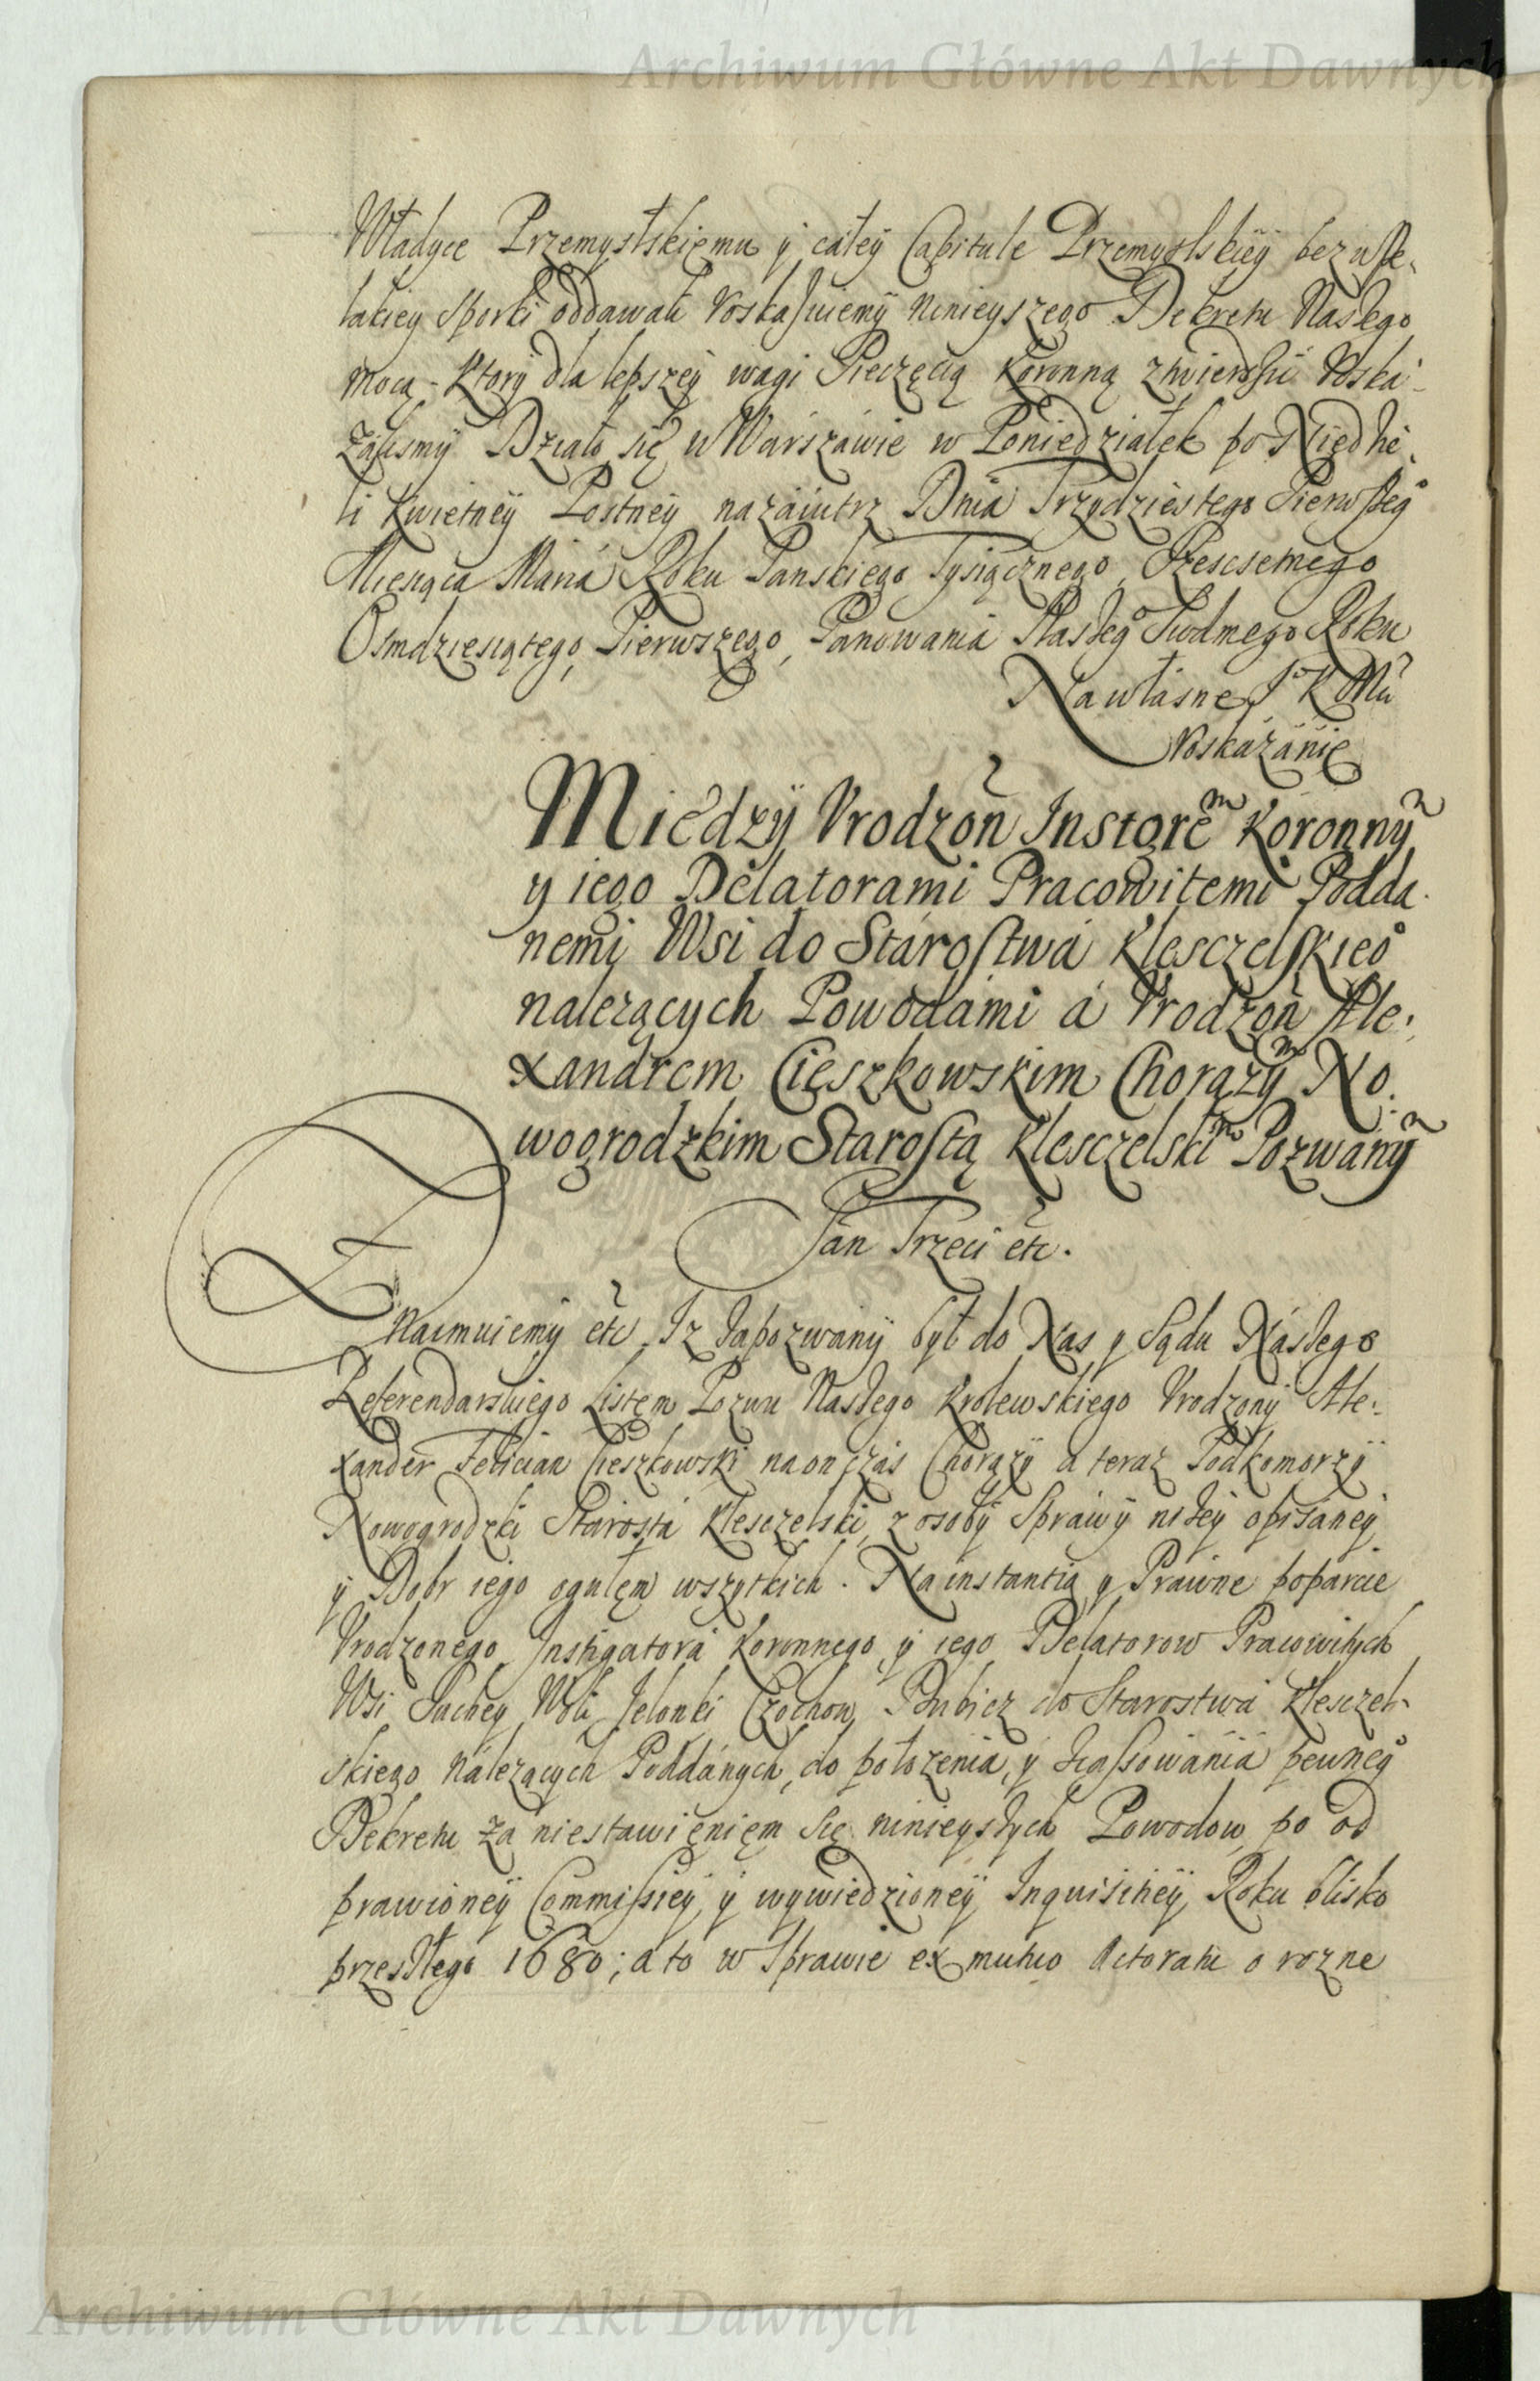 Archiwum Główne Akt Dawnych
Władyce Przemyslskiemu y całey Capitule Przemyslskiey bez wsze-
lakiey sporki oddawali roskazuiemÿ ninieyszego Dekretu Naszego
mocą. Ktory dla lepszey wagi Pieczęcią Koronną ztwierdzić roska-
zalismÿ Działo się w Warszáwie w Poniedziałek po Niedzie-
li Kwietneÿ Postneÿ nazáiutrz Dnia Trzydziestego Pierwszeg°
Miesiąca Marca Roku Panskiego Tysiącznego, Szescsetnego
Osmdziesiątego, Pierwszego, Panowania Naszeg° Siodmego Roku
Na własne J° K Mći
Roskazánie
Miedzÿ Vrodzon Instgrem Koronnÿ
y iego Delatorami Pracowitemi Podda-
nemi Wsi do Stárostwá Klesczelskieg°
nalezących Powodámi á Vrodzon Ale:
xandrem Cieszkowskim Chorązÿm No:
wogrodzkim Starostą Klesczelskim Pozwanÿ
Jan Trzeci etc.
Znaimuiemÿ etc. Iz Zapozwanÿ był do Nas y Sądu Nászego
Referendarskiego Listem Pozwu Naszego Krolewskiego Vrodzonÿ Ale:
xander Felician Cieszkowski na on czás Chorązÿ a teraz Podkomorzÿ
Nowogrodzki Stárostá Klesczelski, z osobÿ Spráwÿ niżeÿ opisáneÿ
ÿ Dobr iego ogułem wszytkich. Na instantią y Práwne poparcie
Vrodzonego Instigatorá Koronnego, ÿ iego Delatorow Pracowitych
Wsi Suchey Woli, Jelonki Czochow, Dubicz do Starostwá Klesczel-
skiego Nálezących Poddánych, do położenia, ÿ skassowániá pewneg°
Dekretu zá niestawieniem się ninieyszych Powodow, po od
prawioneÿ Commissieÿ, ÿ wywiedzioneÿ Inquisitieÿ, Roku blisko
przeszłego 1680; a to w Sprawie ex mutuo Actoratu o rozne
Archiwum Główne Akt Dawnych